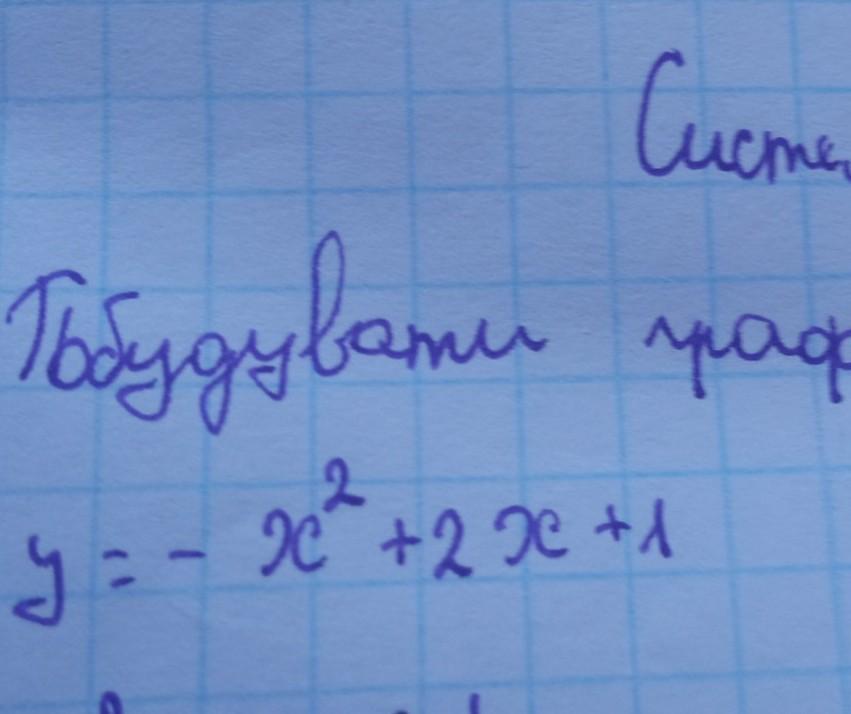 Систе
Побудувати граф
y = - x² + 2x + 1